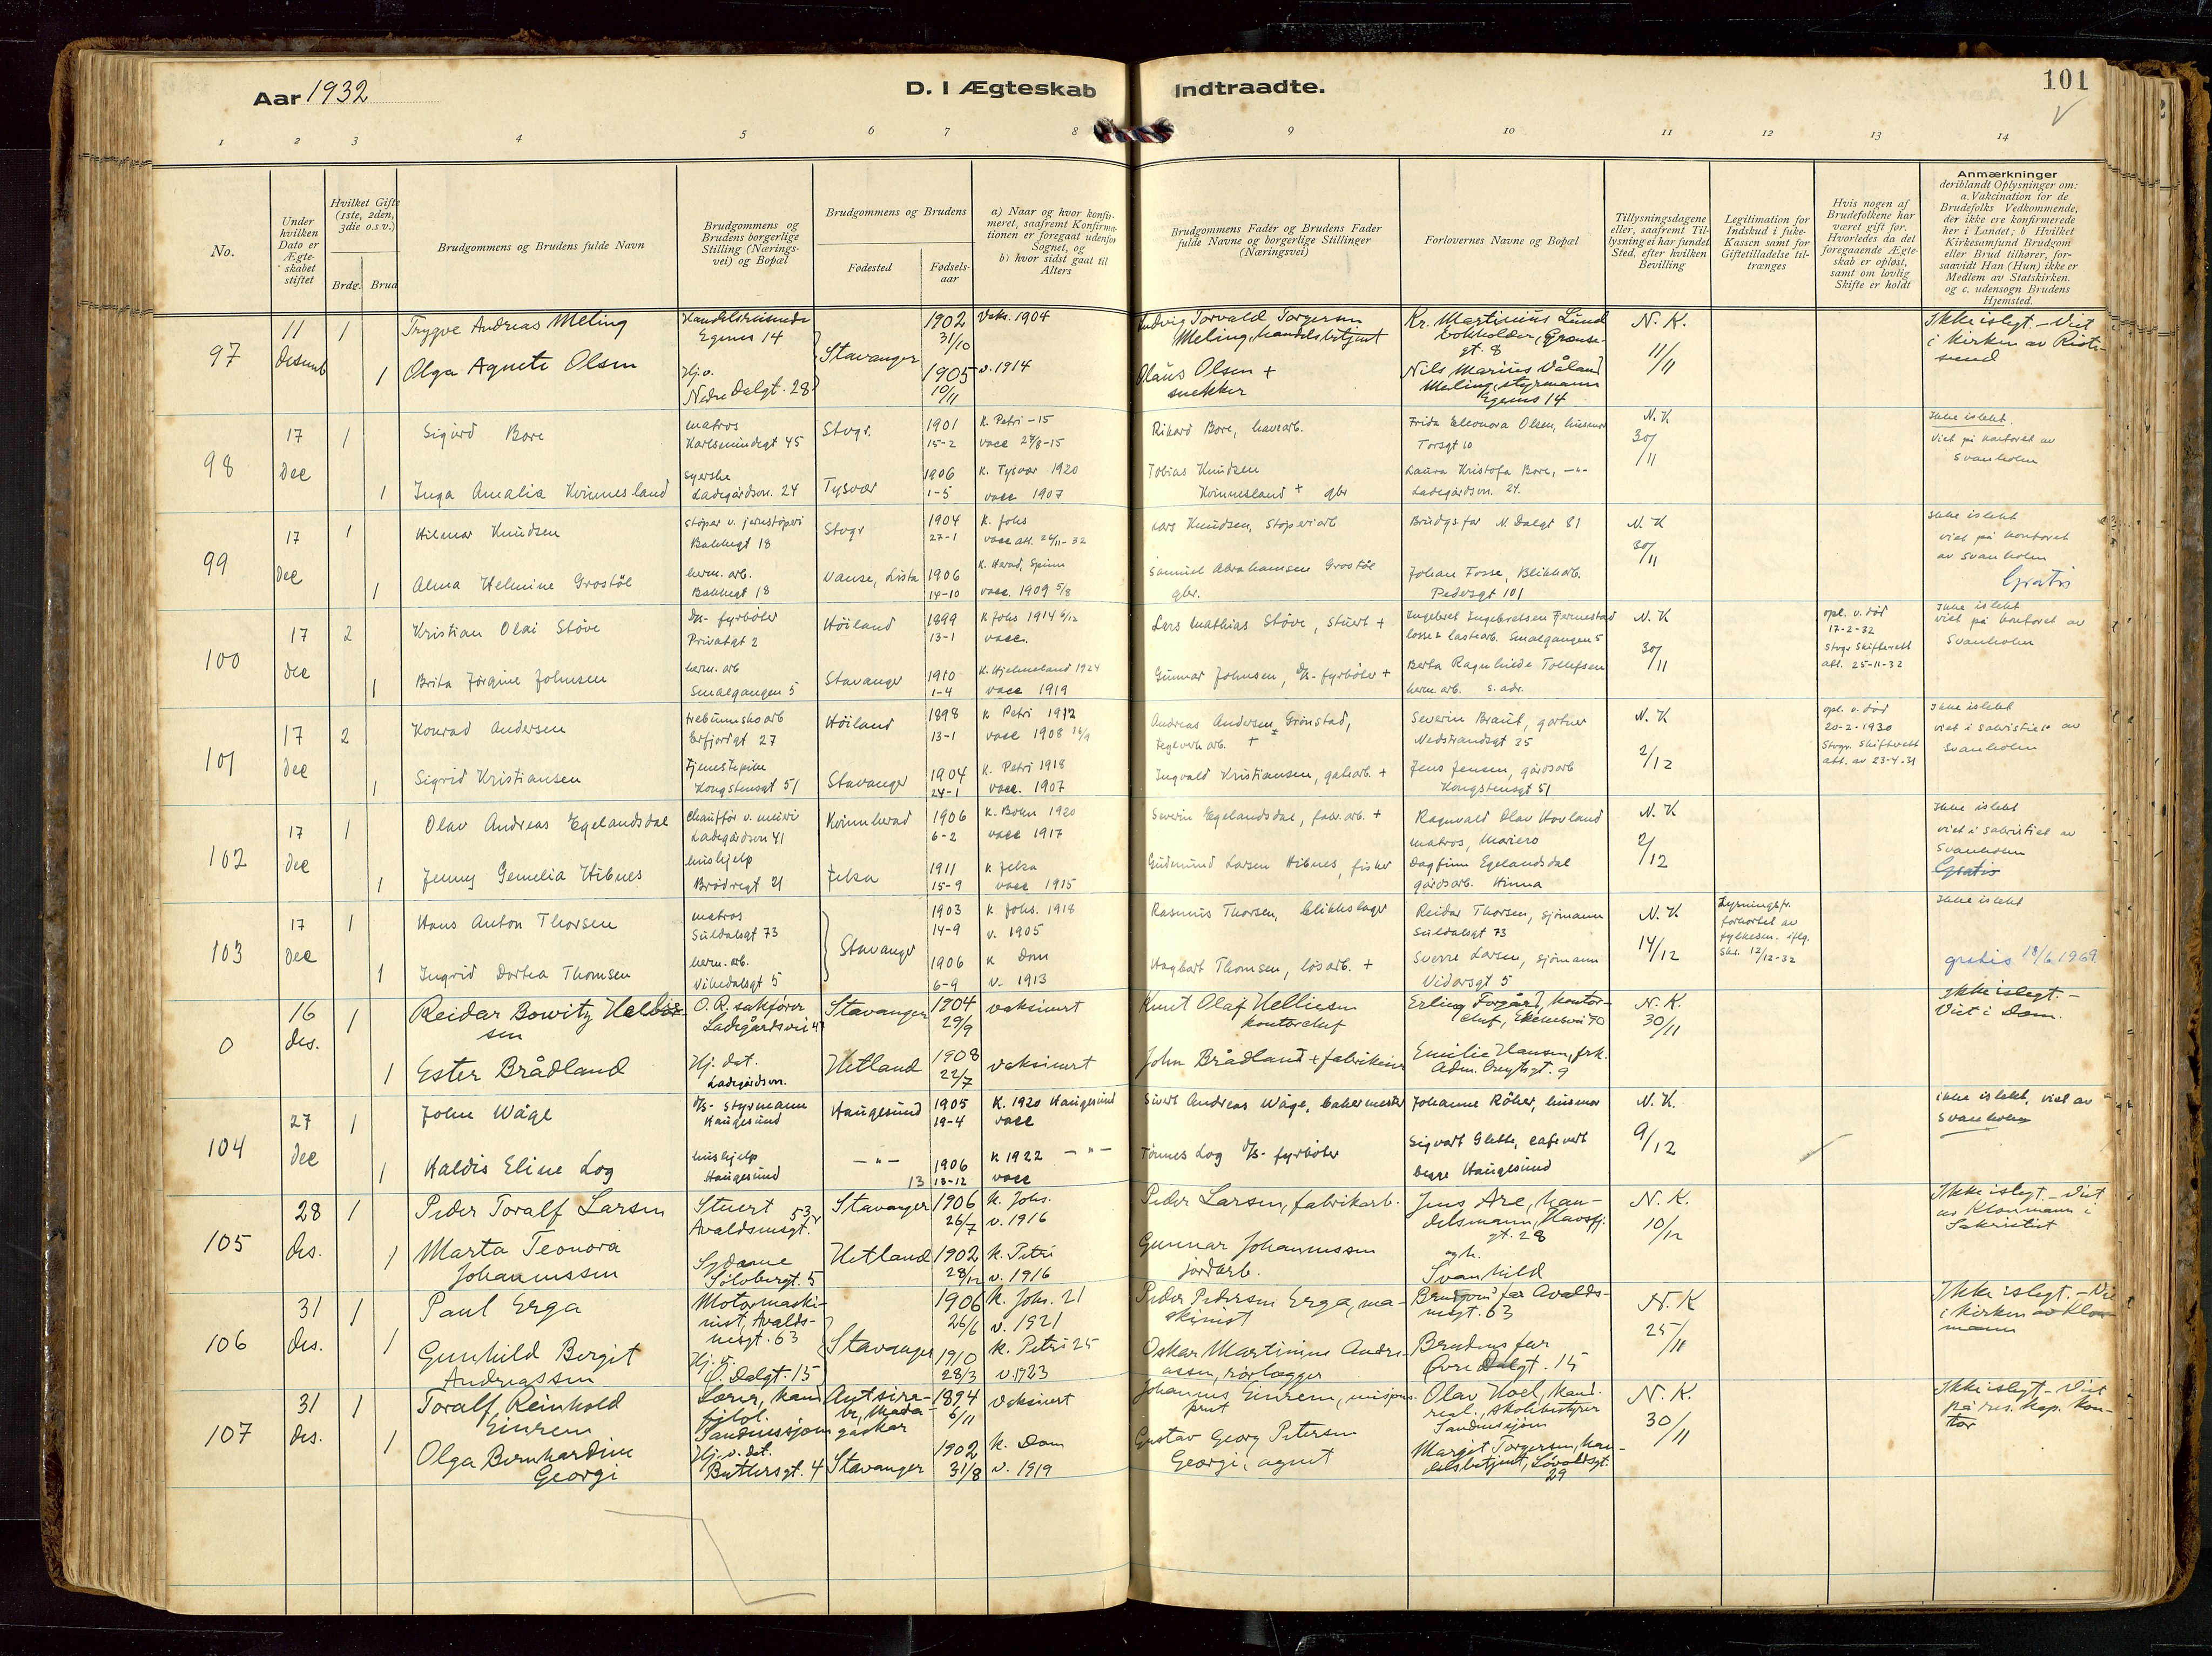 Aar 1932
D. I Ægteskab Indtraadte.
101
1 2 3 4 5 6 7 8 9 10 11 12 13 14
No.
Under hvilken Dato er Ægteskabet stiftet
Hvilket Gifte (1ste, 2den, 3die o.s.v.)
Brdg. Brud
Brudgommens og Brudens fulde Navn
Brudgommens og Brudens borgerlige Stilling (Næringsvei) og Bopæl
Brudgommens og Brudens
Fødested
Fødselsaar
a) Naar og hvor konfirmeret, saafremt Konfirmationen er foregaat udenfor Sognet, og
b) hvor sidst gaat til Alters
Brudgommens Fader og Brudens Fader fulde Navne og borgerlige Stillinger (Næringsvei)
Forlovernes Navne og Bopæl
Tillysningsdagene eller, saafremt Tillysning ei har fundet Sted, efter hvilken Bevilling
Legitimation for Indskud i Enke-Kassen samt for Giftetilladelse tiltrænges
Hvis nogen af Brudefolkene har været gift før. Hvorledes da det foregaaende Ægteskab er opløst, samt om lovlig Skifte er holdt
Anmærkninger
deriblandt Oplysninger om: a. Vakcination for de Brudefolks Vedkommende, der ikke ere konfirmerede her i Landet; b Hvilket Kirkesamfund Brudgom eller Brud tilhører, forsaavidt Han (Hun) ikke er Medlem av Statskirken. og c. udensogn Brudens Hjemsted.
97 11 Desemb 1 Trygve Andreas Meling Handelsreisende Egenes 14 Stavanger 1902 31/10 Vaks. 1904 Ludvig Torvald Torgersen Meling, handelsbetjent Kr. Martinius Lund bokholder, Grensegt. 8 N. K. 11/11 Ikke islegt. - Viet i kirken av
1 Olga Agnete Olsen Hj.v. Nedre Dalgt. 28 1905 10/11 v. 1914 Olaus Olsen + snekker Nils Marius Våland Meling, styrmann Egenes 14
98 17 Dec 1 Sigurd Bore matros Karlseminde gt 45 Stvgr. 1901 15-2 K. Petri -15 vacc 24/8-15 Rikard Bore, havearb. Frida Eleonora Olsen, husmor Torsgt 10 N. K 30/11 Ikke islekt. Viet på kontoret av Svanholm
1 Inga Amalia Kvinnesland syerske Ladegårdsvn. 24 Tysvær 1906 1-5 K. Tysvær 1920 vacc 1907 Tobias Knudsen Kvinnesland + gbr Laura Kristofa Bore, -"- Ladegårdsvn. 24.
99 17 Dec 1 Hilmar Knudsen støper v. jernstøperi Bakkegt 18 Stvgr 1904 27-1 K. Johs vacc att. 26/11-32 Lars Knudsen, støperiarb Brudgs far N. Dalgt 81 N. K 30/11 Ikke islekt viet på kontoret av Svanholm
Gratis
1 Alma Helmine Grostøl herm. arb. Bakkegt 18 Vanse, Lista 1906 14-10 K. Herad, vacc. 1909 5/8 Samuel Abrahamsen Grostøl gbr. Johan Fosse, Blikkarb. Pedersgt 101
100 17 Dec 2 Kristian Olai Støve D/s- fyrbøter Privatgt 2 Høiland 1899 13-1 K Johs 1914 6/12 vacc. Lars Mathias Støve, stuert + Ingebret Ingebretsen Fjermestad losse & lastearb. Smalgangen 5 N. K 30/11 opl. v. død 17-2-32 Stvgr Skifterett att. 25-11-32 Ikke islekt viet på kontoret av Svanholm
1 Brita Jørgine Johnsen herm. arb Smalgangen 5 Stavanger 1910 1-4 K. Hjelmeland 1924 vacc 1919 Gunnar Johnsen, D/s- fyrbøter + Berta Ragnhilde Tollefsen herm. arb. s. adr.
101 17 Dec 2 Konrad Andersen trebunnskoarb Erfjordgt 27 Høiland 1898 13-1 K Petri 1912 vacc 1908 16/9 Andreas Andersen Grönstad, teglverk arb. + Severin Braut, gartner Nedstrandsgt 35 N. K 2/12 opl. v. død 20-2-1930 Stvgr. Skifterett att. av 23-4-31 Ikke islekt viet i sakristiet av Svanholm
1 Sigrid Kristiansen tjenestepike Kongstensgt 51 Stavanger 1904 24-1 K. Petri 1918 vacc. 1907 Ingvald Kristiansen, gatearb. + Jens Jensen, gårdsarb Kongstensgt 51
102 17 Dec 1 Olav Andreas Egelandsdal Chauffør v. meieri Ladegårdsvn 41 Kvinnherad 1906 6-2 K. Bokn 1920 vacc 1917 Severin Egelandsdal, fabr. arb. + Ragnvald Olav Hovland matros, Mariero N. K 2/12 Ikke islekt viet i sakristiet av Svanholm
Gratis
1 Jenny Gemelia Hibnes hushjelp Brødregt 21 Jelsa 1911 15-9 K Jelsa vacc 1915 Gudmund Larsen Hibnes, fisker Dagfinn Egelandsdal gårdsarb. Hinna
103 17 Dec 1 Hans Anton Thorsen matros Suldalsgt 73 Stavanger 1903 14-9 K Johs. 1918 v. 1905 Rasmus Thorsen, blikkslager Reidar Thorsen, sjømann Suldalsgt 73 N. K 14/12 Lysningsfr. forkortet av fylkesm. iflg. skr. 12/12-32 Ikke islekt
gratis 18/6 1969.
1 Ingrid Dortea Thomsen herm. arb. Vikedalsgt 5 1906 6-9 K Dom v. 1913 Hagbart Thomsen, løsarb. + Sverre Larsen, sjømann Vidarsgt 5
0 16 des. 1 Reidar Bowitz Helliesen O.R. sakfører Ladegårdsvei 4 Stavanger 1904 29/9 vaksinert Knut Olaf Helliesen kontorchef Erling Forgård, kontorchef, 70 N. K. 30/11 Ikke islegt. - Viet i Dom.
1 Ester Brådland Hj. dat. Ladegårdsvn. Hetland 1908 22/7 vaksinert John Brådland + fabrikeier Emilie Hansen, frk. Adm. Cruysgt. 9
104 27 Dec 1 John Wåge D/s- styrmann Haugesund Haugesund 1905 19-4 K. 1920 Haugesund vacc Sivert Andreas Wåge, bakermester Johanne Röker, husmor N. K. 9/12 ikke islekt, viet av Svanholm
1 Haldis Eline Log hushjelp Haugesund -"- 13 1906 13-12 K 1922 -"- vacc Tönnes Log D/s- fyrbøter Sigvart Glette, cafevert begge Haugesund
105 28 des. 1 Peder Toralf Larsen Stuert Avaldsnesgt. 53 Stavanger 1906 26/7 k. Johs. v. 1916 Peder Larsen, fabrikarb. Jens Are, handelsmann, Havsfj. gt. 28 N. K. 10/12 Ikke islegt. - Viet av Klonmann i Sakristiet
1 Marta Teonora Johannessen Sydame Sølvbergt. 5 Hetland 1902 28/12 k. Petri v. 1916 Gunnar Johannessen jordarb. og h. Svanhild
106 31 des. 1 Paul Erga Motormaskinist, Avaldsnesgt. 63 Stavanger 1906 26/6 k. Johs. 21 v. 1921 Peder Pedersen Erga, maskinist Brudgoms far Avaldsnesgt. 63 N. K 25/11 Ikke islegt. - Vi i kirken av Klonmann
1 Gunhild Bergit Andreassen Hj. v. Ø. Dalgt. 15 1910 28/3 k. Petri 25 v. 1923 Oskar Martinius Andreassen, rørlegger Brudens far Øvre Dalgt. 15
107 31 des. 1 Toralf Reinhold Einrem Lærer, kand filol. Sandnessjøen Antsirabe, Madagaskar 1894 6/11 vaksinert Johannes Einrem, misjonsprest Olav Hoel, kand. real., skolebestyrer Sandnessjøen N. K. 30/11 Ikke islegt - Viet på res. kap. kontor
1 Olga Bernhardine Georgi Hj. v. det. Buttersgt. 4 Stavanger 1902 31/8 k. Dom v. 1919 Gustav Georg Petersen Georgi, agent Margit Torgersen, handelsbetjent, Løvoldsgt. 29